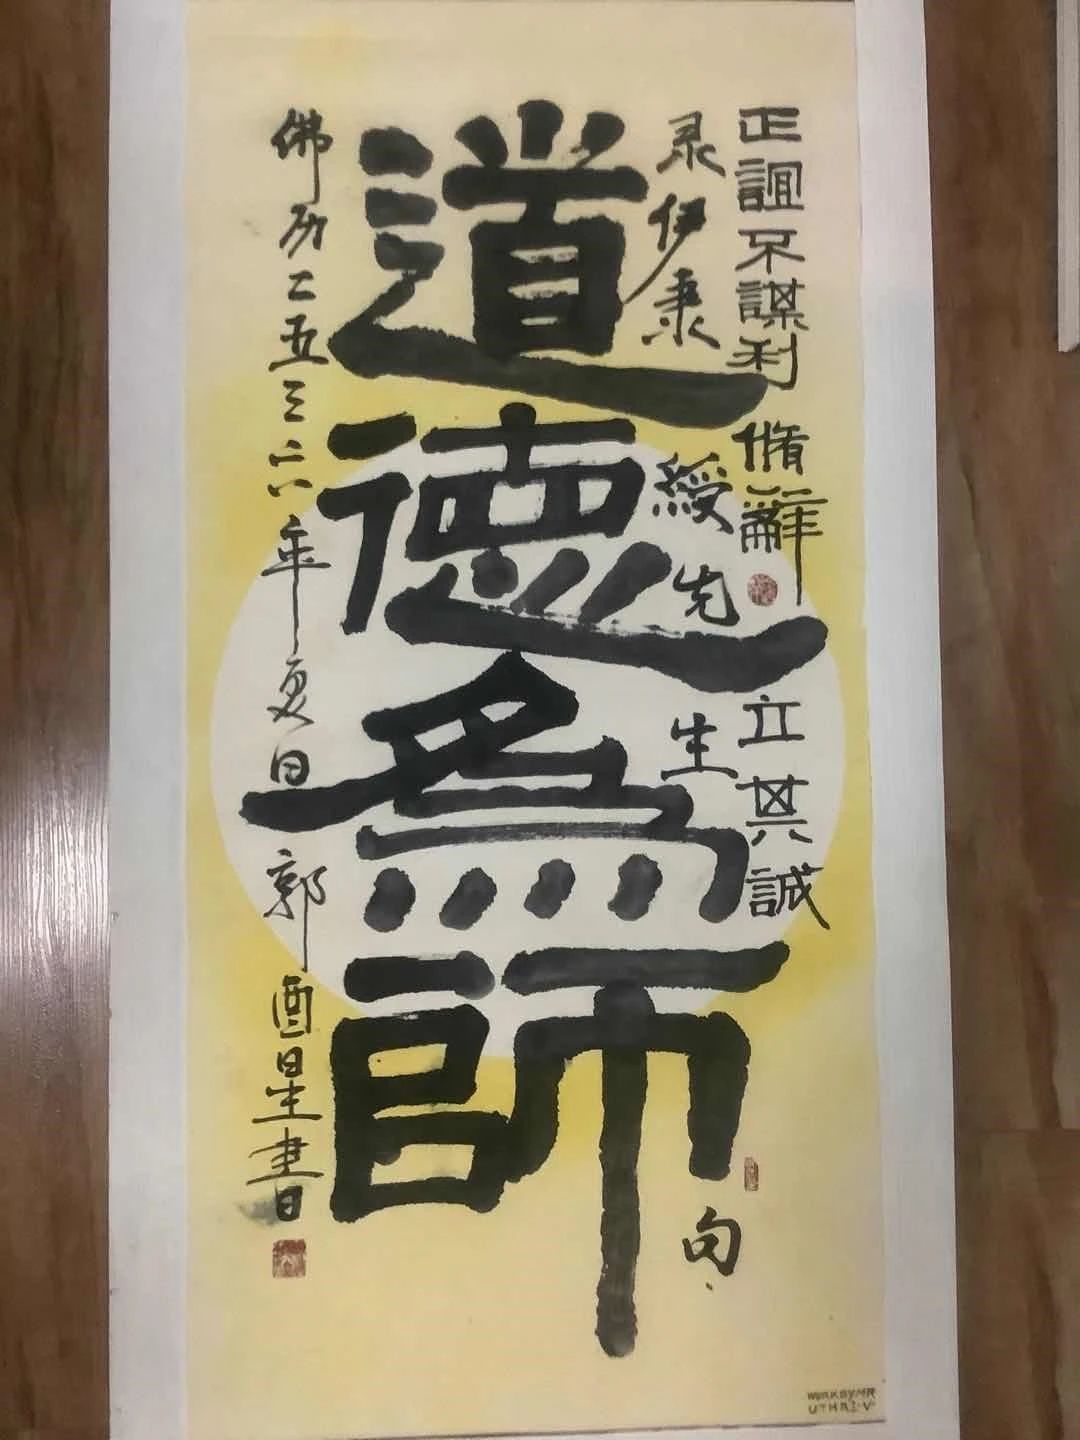 正誼不謀利 脩辭立其誠
录伊秉綬先生句
道德為師
佛历二五三六年夏日郭酉星書
WORK BY MR
UTHAI·V